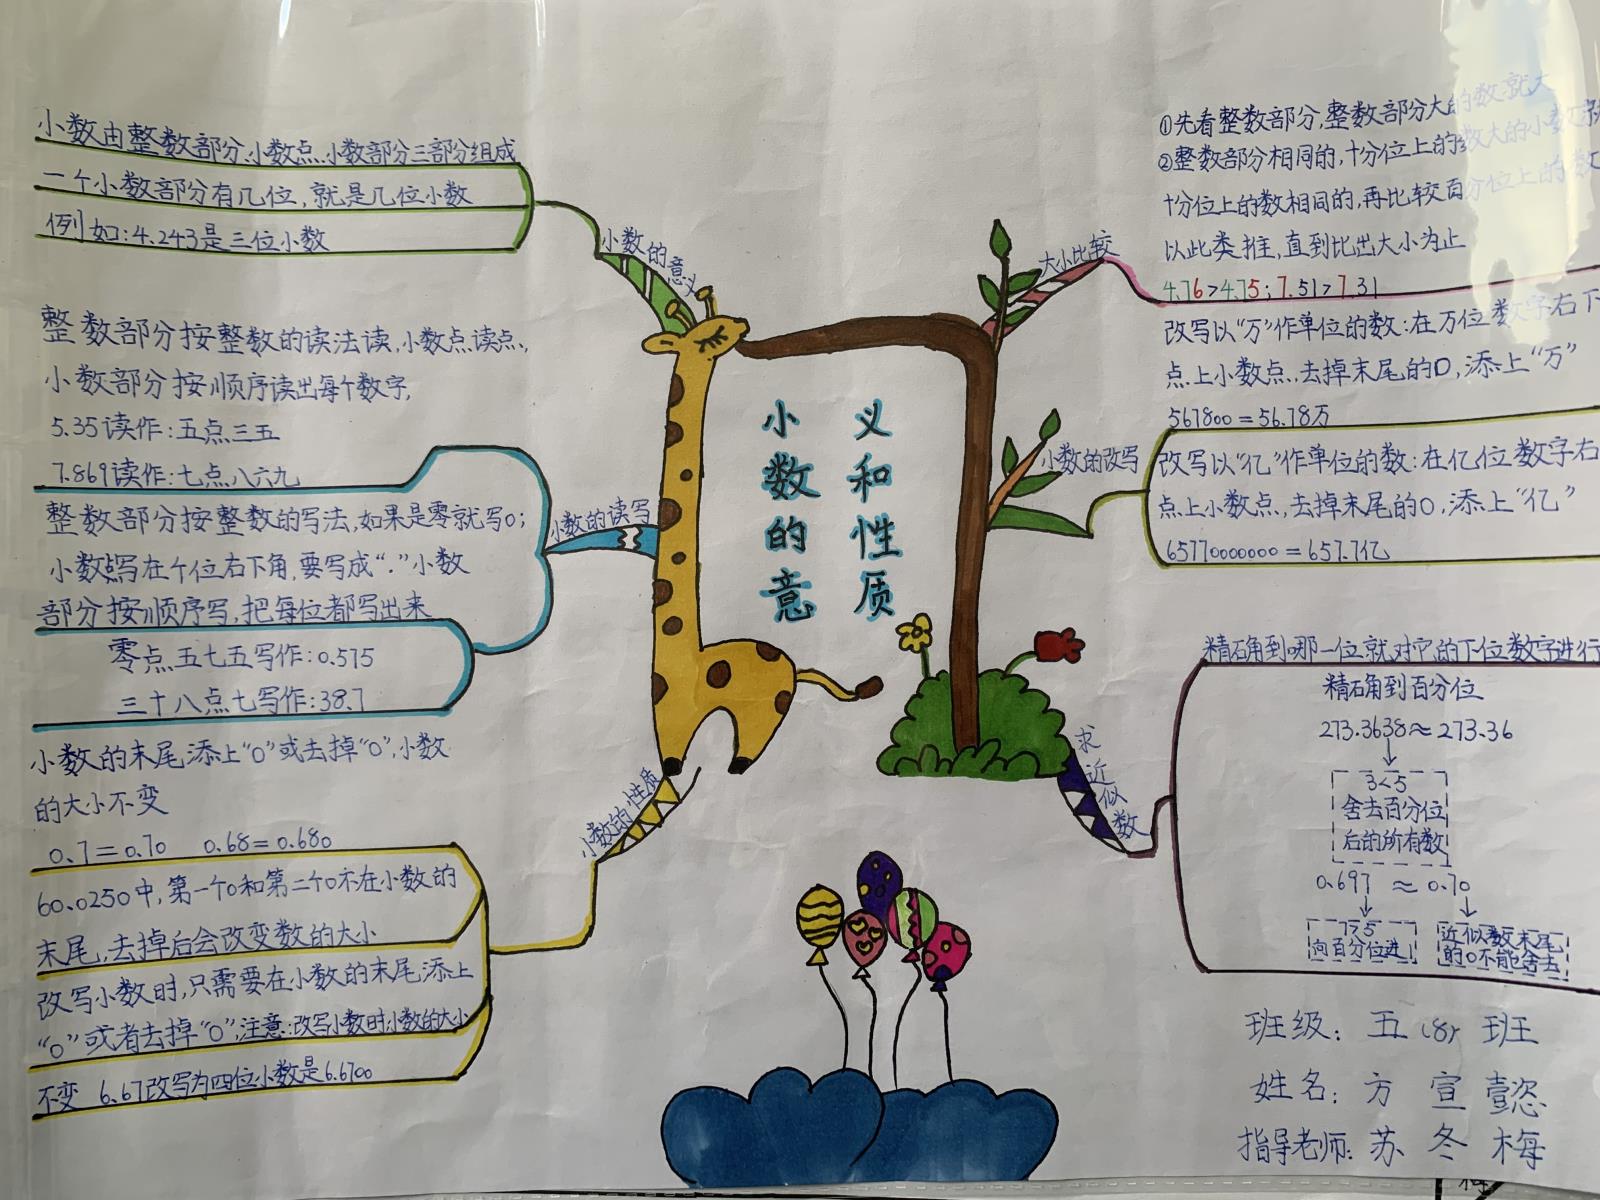 小数的意义和性质
小数的意义
小数由整数部分、小数点、小数部分三部分组成
一个小数部分有几位，就是几位小数
例如:4.243是三位小数
小数的读写
整数部分按整数的读法读，小数点读点，
小数部分按顺序读出每个数字，
5.35读作:五点三五
7.869读作:七点八六九
整数部分按整数的写法，如果是零就写0；
小数点写在个位右下角，要写成“.”小数
部分按顺序写，把每位都写出来
零点五七五写作:0.575
三十八点七写作:38.7
小数的性质
小数的末尾添上“0”或去掉“0”，小数
的大小不变
0.7=0.70 0.68=0.680
60.0250中，第一个0和第二个0不在小数的
末尾，去掉后会改变数的大小
改写小数时，只需要在小数的末尾添上
“0”或者去掉“0”，注意:改写小数时小数的大小
不变 6.67改写为四位小数是6.6700
大小比较
①先看整数部分，整数部分大的数就大
②整数部分相同的，十分位上的数大的小数就
十分位上的数相同的，再比较百分位上的数
以此类推，直到比出大小为止
4.76>4.75；7.51>7.31
小数的改写
改写以“万”作单位的数:在万位数字右下
点上小数点，去掉末尾的0，添上“万”
567800=56.78万
改写以“亿”作单位的数:在亿位数字右
点上小数点，去掉末尾的0，添上“亿”
65770000000=657.7亿
求近似数
精确到哪一位就对它的下位数字进行
精确到百分位
273.3638≈273.36
3<5
舍去百分位
后的所有数
0.697 ≈0.70
7>5
向百分位进1
近似数末尾
的0不能舍去
班级：五（8）班
姓名：方宣懿
指导老师：苏冬梅